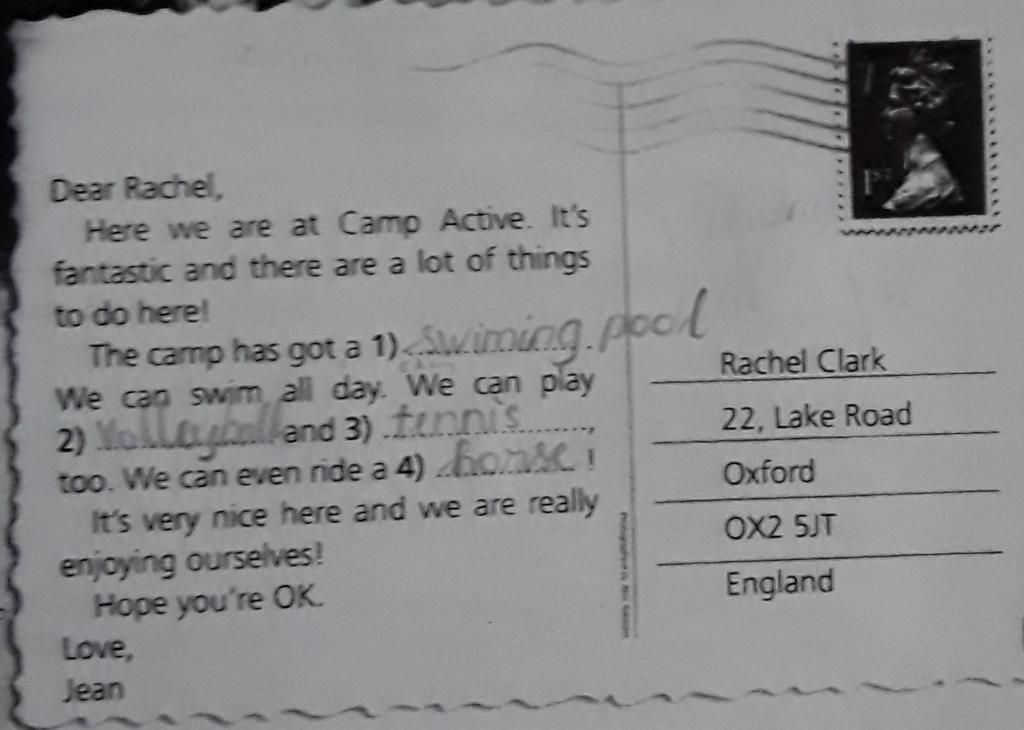 Dear Rachel,
Here we are at Camp Active. It's
fantastic and there are a lot of things
to do here!
The camp has got a 1) swiming pool
We can swim all day. We can play
2) Volleyball and 3) tennis ,
too. We can even ride a 4) horse !
It's very nice here and we are really
enjoying ourselves!
Hope you're OK.
Love,
Jean
1st
Rachel Clark
22, Lake Road
Oxford
OX2 5JT
England